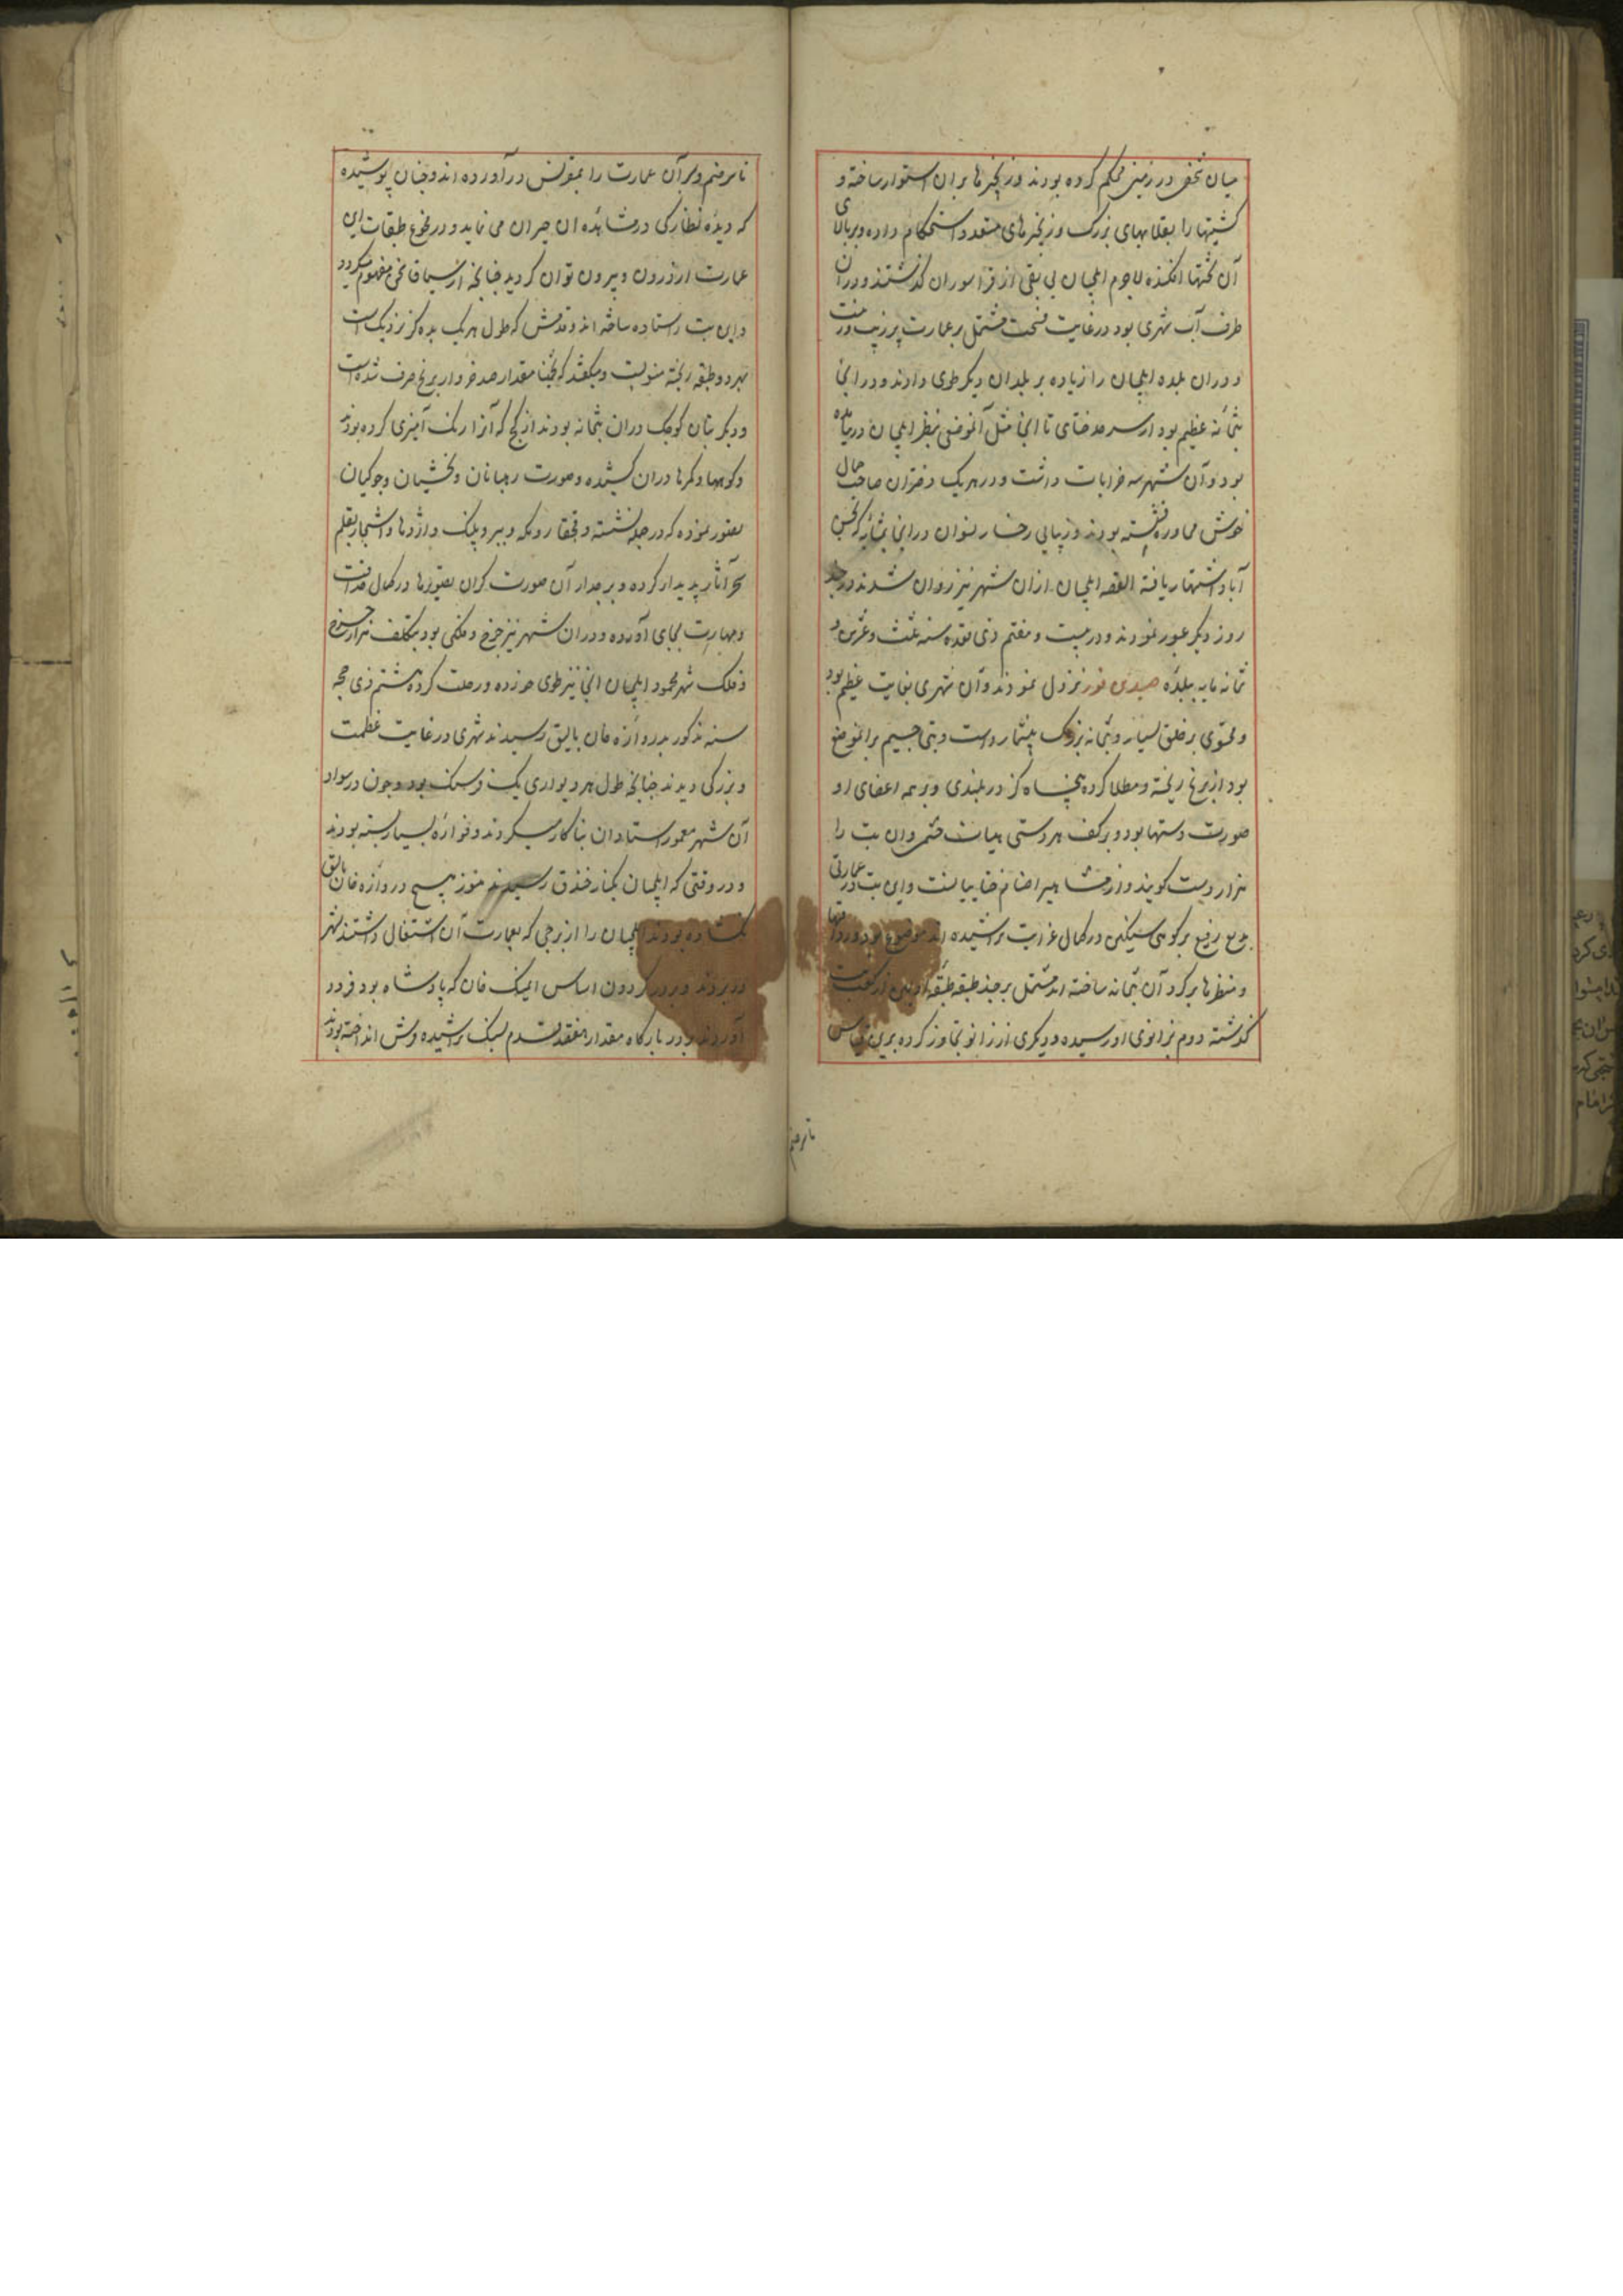 میان شخص در زمین محکم کرده بودند و زنجیرها بران استوار ساخته و
کشتیها را بقلابهای بزرک و زنجیرهای متعدد استحکام داده و بر بالای
آن تختها افکنده لاجرم ایلچیان بی از قراموران کذشتند و در ان
طرف آب شهری بود در غایت فسحت مشتمل بر عمارت پر زیب و زینت
و دران بلده ایلچیان را زیاده بر بلدان دیکر طوی دادند و در انجا
بتخانه عظیم بود از سرحد ختای تا انجا مثل آنموضعی بنظر ایلچیان در نیامده
بود و آن شهر سه خرابات داشت و در هر یک دختران صاحب جمال
خوش محاوره نشسته بودند و زیبایی رخسار نسوان در انجا بمثابه که بحسن
آباد اشتهار یافته القصه ایلچیان ازان شهر نیز روان شدند و در چند
روز دیکر عبور نمودند و در بیست و هفتم ذی قعده سنه ثلث و عشرین و
ثمانمایه ببلده صدین فور نزول نمودند و آن شهری بغایت عظیم بود
و محتوی بر خلق بسیار و بتخانه بزرک بیشمار و بتی جسیم برانموضع
بود از برنج ریخته و مطلا کرده پنجاه کز در بلندی و بر همه اعضای او
صورت دستها بود و بر کف هر دستی هیات چشمی وان بت را
هزار دست کویند و از مشاهیر اصنام ختاییانست و این بت در عمارتی
رفیع بر کوهی سنکین در کمال غرابت تراشیده اند موضوع بود و رواقها
و منظرها بر کرد آن بتخانه ساخته اند مشتمل بر چند طبقه طبقه اولین از کعب بت
کذشته دوم بزانوی او رسیده و دیکری از زانو تجاوز کرده برین قیاس
تا سر صنم
تا بسر صنم و سر آن عمارت را بمقرنس در آورده اند و چنان پوشیده
که دیده نظارکی در مشاهده ان حیران می نماید و در مجموع طبقات این
عمارت از درون و بیرون توان کردید چنانچه از سیاق سخن مفهوم میکردد
و این بت را ستاده ساخته اند و قدمش که طول هر یک بده کز نزدیک است
بر دو طبقه ریخته منصوبست و میکفتند که تخمینا مقدار صد خروار برنج صرف شده است
و دیکر بتان کوچک دران بتخانه بودند از کج که آنرا رنک آمیزی کرده بودند
و کوهها و کمرها دران کشیده و صورت رهبانان و بخشیان و جوکیان
تصویر نموده که در چله نشسته و قچقار و تکه و ببر و پلنک و اژدها و اشجار بقلم
سحر آثار پدیدار کرده و بر جدار آن صورت کران تصویرها در کمال حذاقت
و مهارت بجای آورده و دران شهر نیز چرخ و فلکی بود بتکلف تر از چرخ
و فلک شهر محمود ایلچیان انجا نیز طوی خورده و رحلت کرده هشتم ذی حجه
سنه مذکور بدروازه خان بالیق رسیدند شهری در غایت عظمت
و بزرکی دیدند چنانچه طول هر دیواری یک فرسنک بود و چون در سواد
آن شهر معمور استادان بنا کار میکردند و خوازه بسیار بسته بودند
و در وقتی که ایلچیان بکنار خندق رسیدند هنوز هیچ دروازه خان بالیق
نکشاده بودند ایلچیان را از برجی که بعمارت آن اشتغال داشتند بشهر
در بردند و بر در کردون اساس ایمنک خان که پادشاه بود فرود
آوردند و در بارکاه مقدار هفتصد قدم سنک تراشیده فرش انداخته بودند